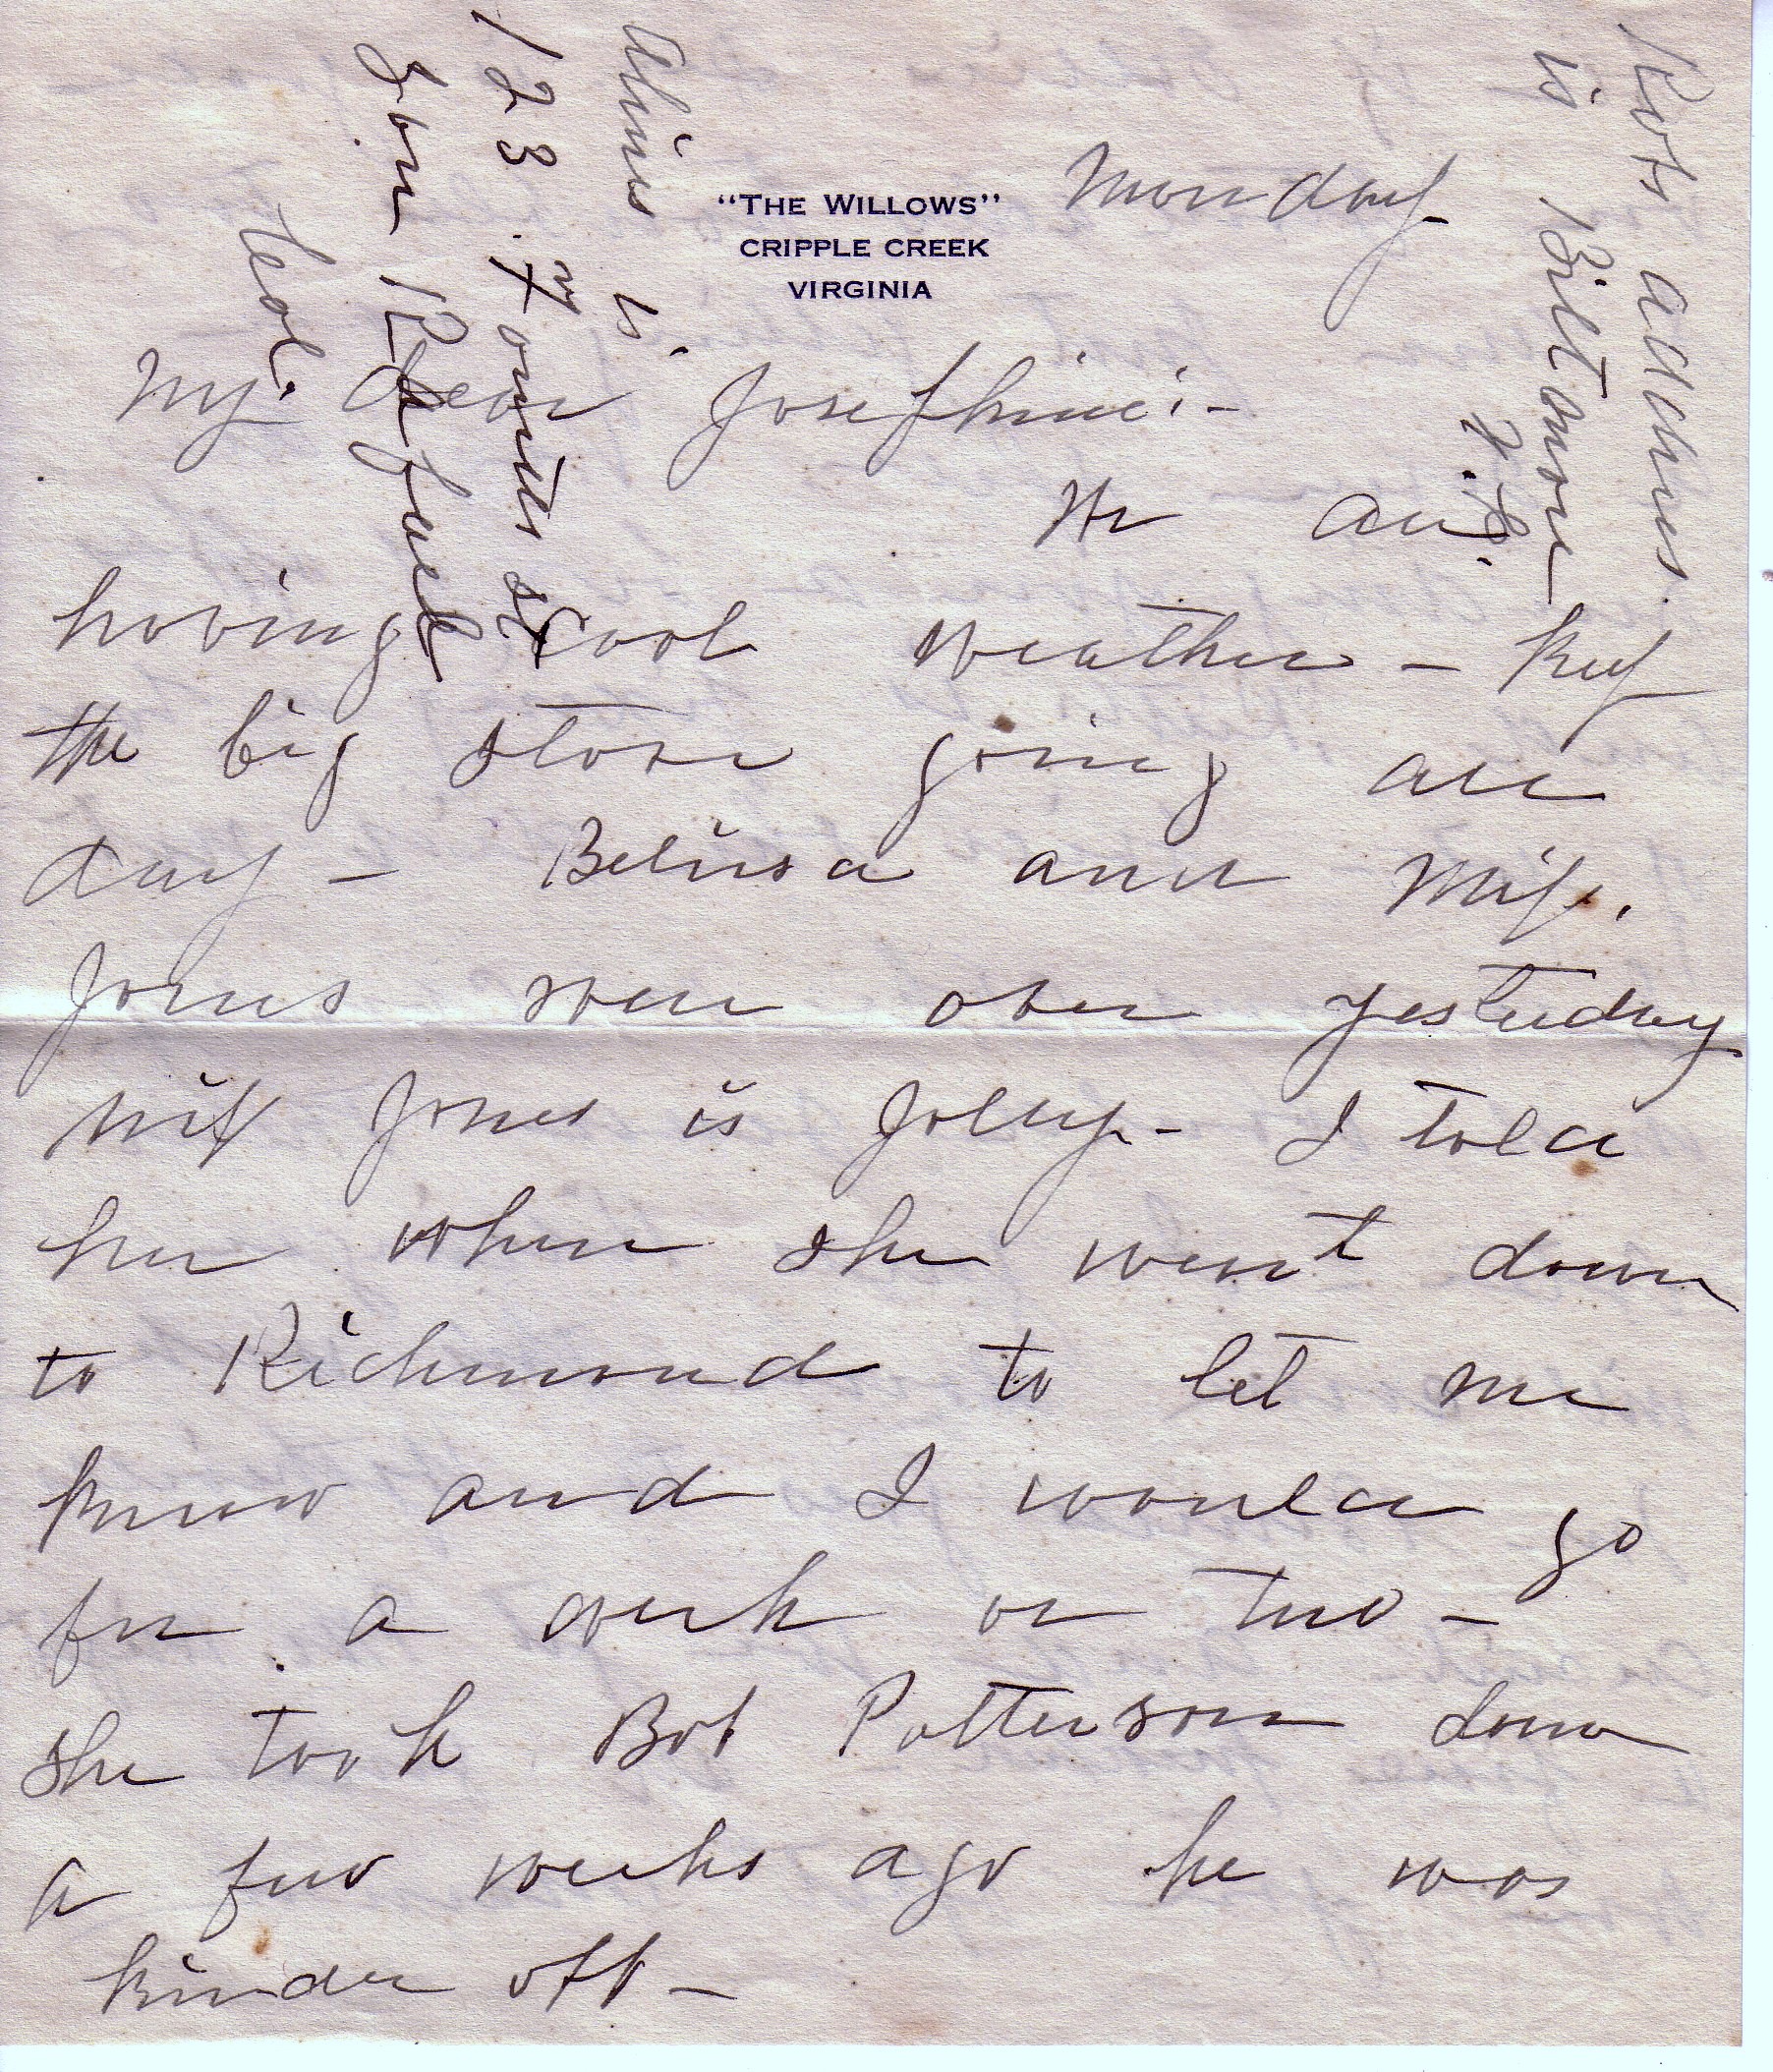 "THE WILLOWS"
CRIPPLE CREEK
VIRGINIA
Monday
My dear Josephine:-
We are
having cool weather - keep
the big stove going all
day - Belusa and Miss.
Jones were over yesterday
Miss Jones is jolly - I told
her when she went down
to Richmond to let me
know and I would go
for a week or two -
she took Bob Patterson down
a few weeks ago he was
kinder off -
address.
is Biltmore
is.
123
St
Col.